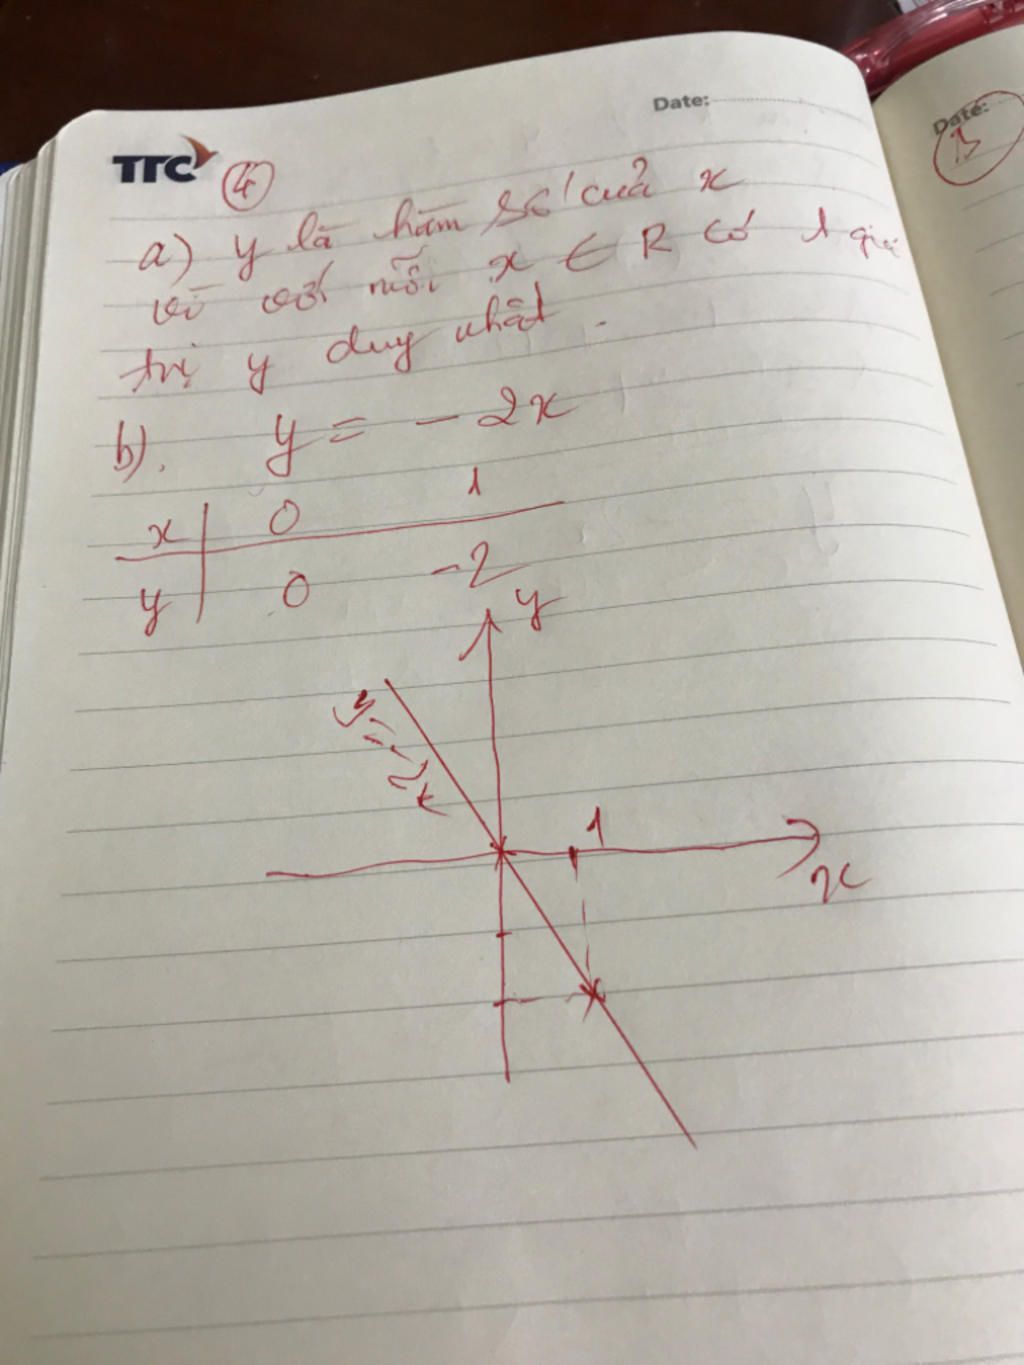 Date:
TTC
4
a) y là hàm số của x
vì với mỗi x ∈ R có 1 giá
trị y duy nhất.
b). y = - 2x
x 0 1
y 0 -2
y
y = -2x
1
x
Date: